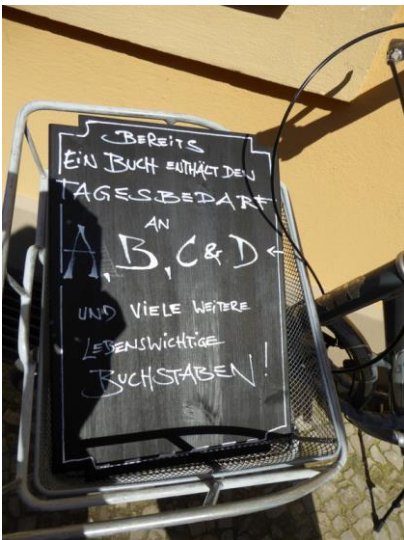 BEREITS
EIN BUCH ENTHÄLT DEN
TAGESBEDARF
AN
A, B, C & D
UND VIELE WEITERE
LEBENSWICHTIGE
BUCHSTABEN!